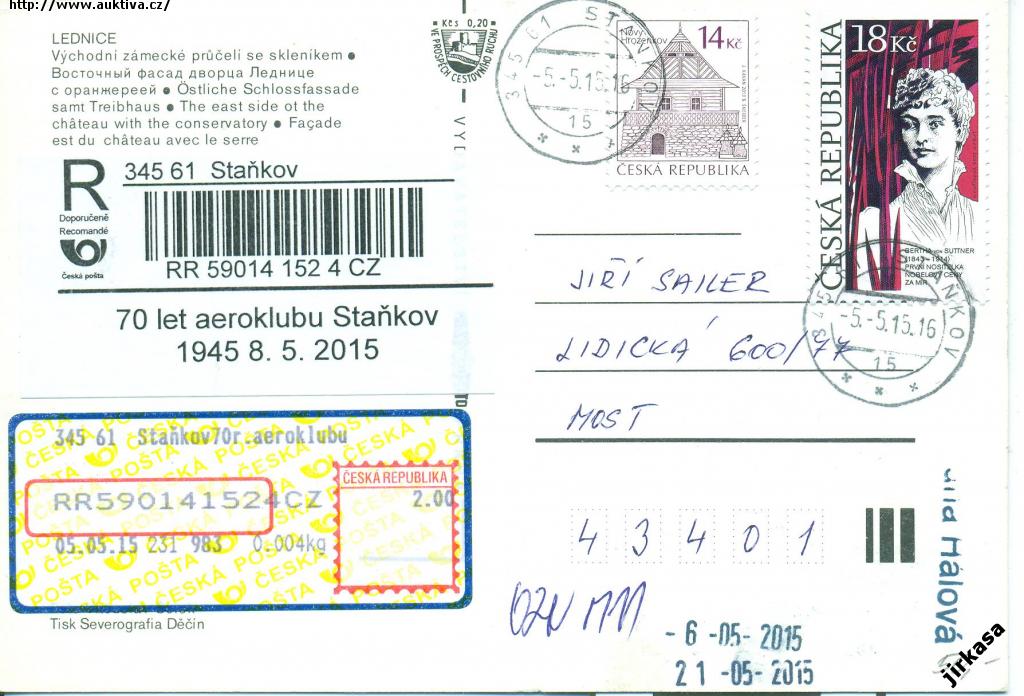 http://www.auktiva.cz/
LEDNICE
Východní zámecké průčelí se skleníkem •
Восточный фасад дворца Леднице
с оранжереей • Östliche Schlossfassade
samt Treibhaus • The east side ot the
château with the conservatory • Façade
est du château avec le serre
Kčs 0,20
VE PROSPĚCH CESTOVNÍHO RUCHU
345 61 STAŇKOV
-5.-5.15.16
15
14 Kč
ČESKÁ REPUBLIKA
18 Kč
ČESKÁ REPUBLIKA
BERTHA von SUTTNER
(1843 - 1914)
PRVNÍ NOSITELKA
NOBELOVY CENY
ZA MÍR
345 61 STAŇKOV
-5.-5.15.16
15
R
Doporučeně
Recomandé
Česká pošta
345 61 Staňkov
RR 59014 152 4 CZ
70 let aeroklubu Staňkov
1945 8. 5. 2015
JIŘÍ SAILER
LIDICKÁ 600/77
MOST
43401
345 61 Staňkov70r.aeroklubu
RR590141524CZ
ČESKÁ REPUBLIKA
2.00
05.05.15 231 983 0.004kg
ČESKÁ POŠTA
Tisk Severografia Děčín
OZN MM
- 6 -05- 2015
21 -05- 2015
Hálová
jirkasa